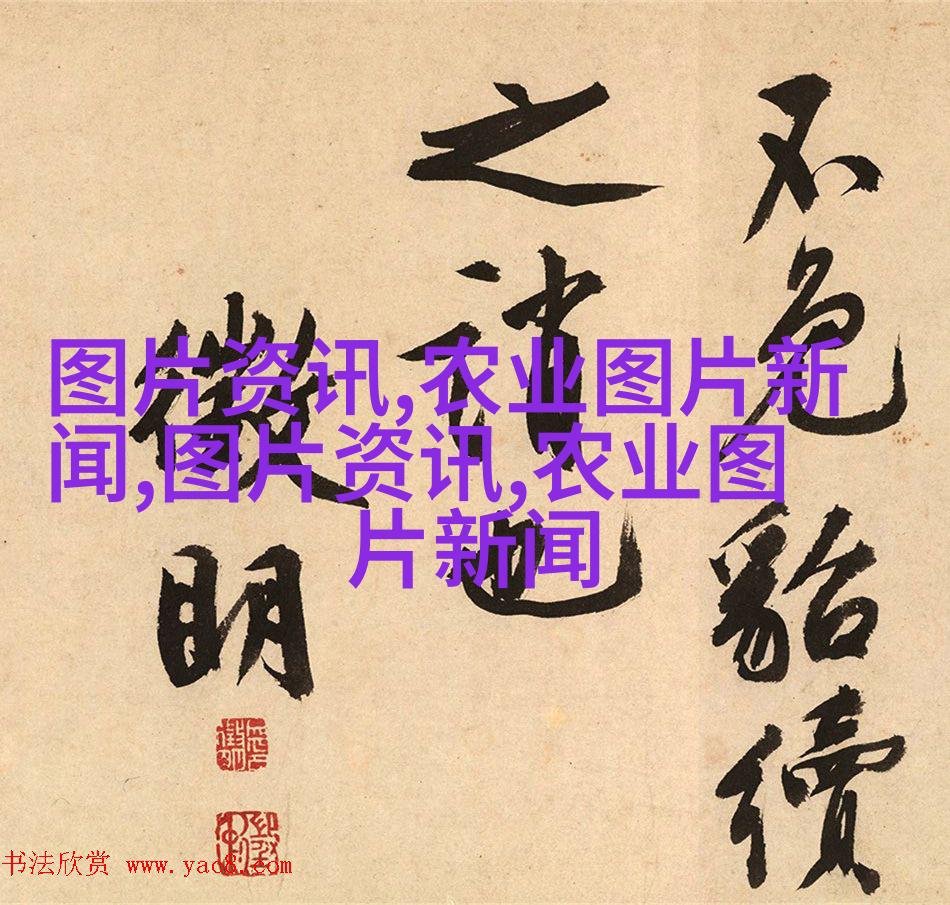 不免貂續
之誚也
徵明
图片资讯,农业图片新
闻,图片资讯,农业图
片新闻
书法欣赏 www.yac8.com